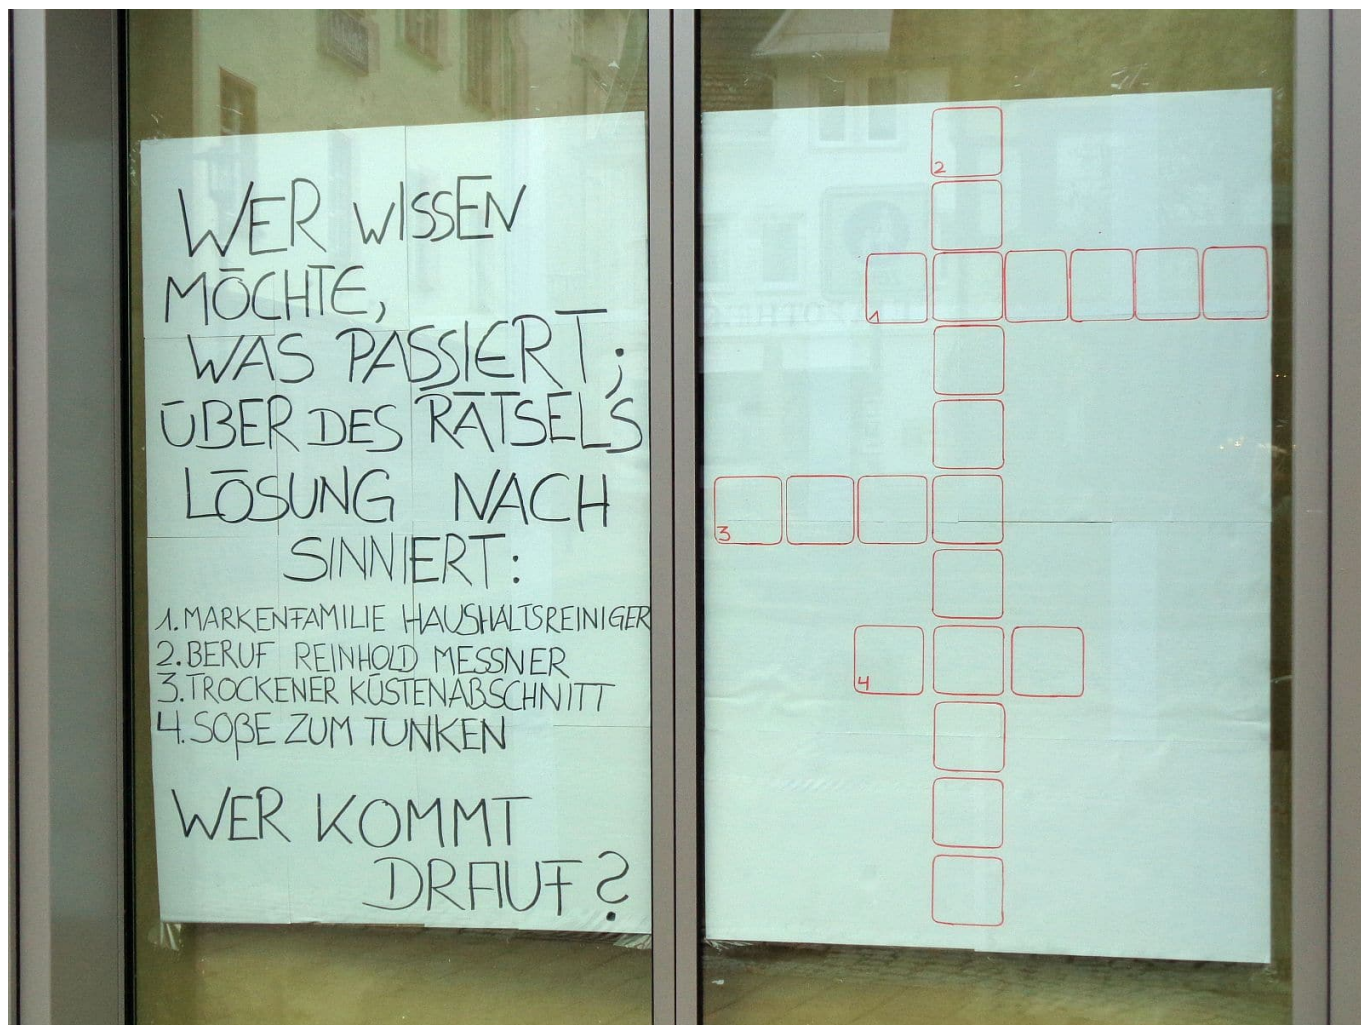 WER WISSEN
MÖCHTE,
WAS PASSIERT;
ÜBER DES RÄTSELS
LÖSUNG NACH
SINNIERT:
1. MARKENFAMILIE HAUSHALTSREINIGER
2. BERUF REINHOLD MESSNER
3. TROCKENER KÜSTENABSCHNITT
4. SOßE ZUM TUNKEN
WER KOMMT
DRAUF?
2
1
3
4